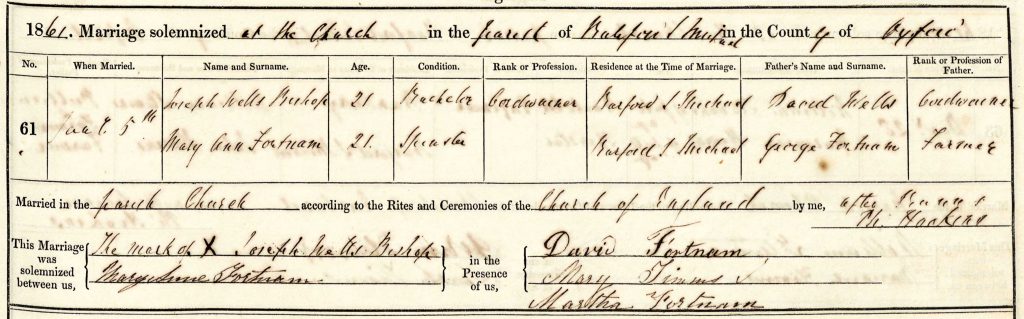 1861. Marriage solemnized at the Church in the parish of Barford S Michael in the County of Oxford
No. When Married. Name and Surname. Age. Condition. Rank or Profession. Residence at the Time of Marriage. Father's Name and Surname. Rank or Profession of Father.
61 5th Joseph Wells Bishop 21 Bachelor Cordwainer Barford S Michael David Wells Cordwainer
Mary Ann Fortnam 21. Spinster Barford S Michael George Fortnam Farmer
Married in the parish Church according to the Rites and Ceremonies of the Church of England by me, after Banns
Hockins
This Marriage was solemnized between us, The mark of X Joseph Wells Bishop
Mary Anne Fortnam.
in the Presence of us, David Fortnam
Mary Timms
Martha Fortnam